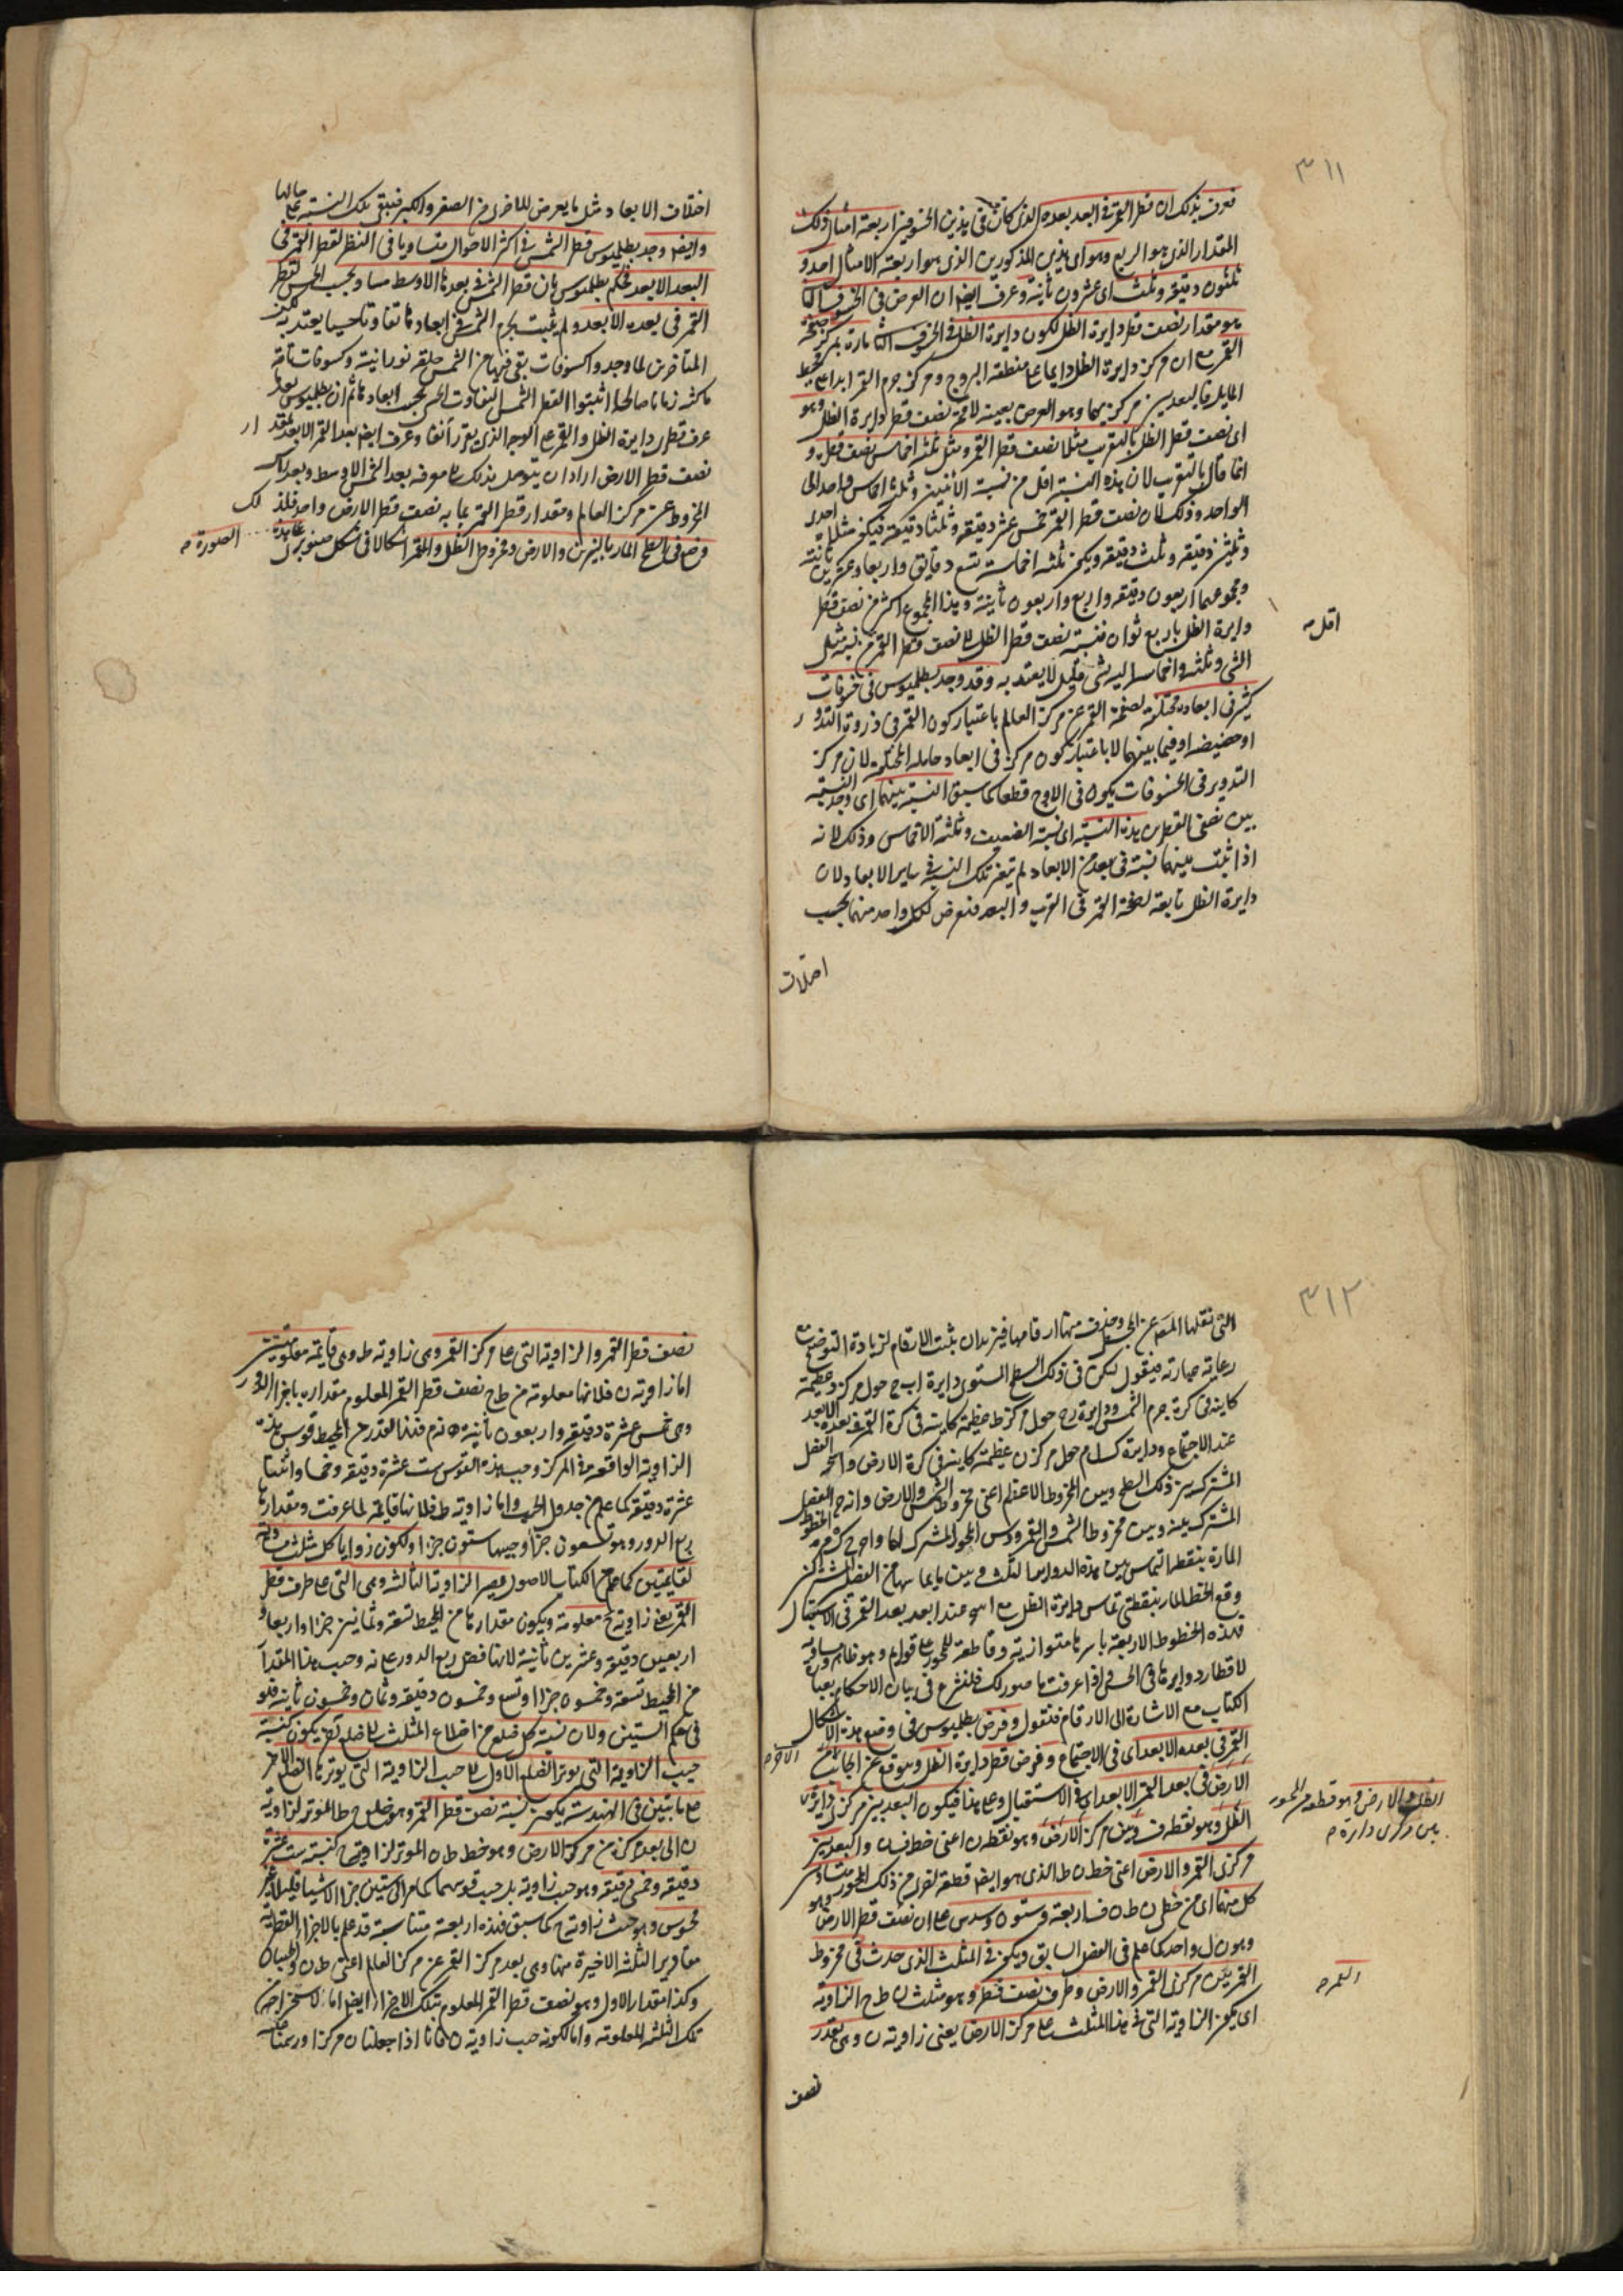 ٣١١
فعرف بذلك ان قطر القمر فى البعد بعده الذى كان فى هذين الخسوفين اربعة امثال ذلك
المقدار الذى هو الربع وهو اى هذين المذكورين الذى هو اربعة الامثال احد و
ثلثون دقيقة وثلث اى عشرون ثانية وعرف ايضا ان العرض فى الخسوف الثانى
هو مقدار نصف قطر دايرة الظل لكون دايرة الظل فى الخسوف الثانى مارة بمركز صفحة
القمر مع ان مركز دايرة الظل دايما على منطقة البروج ومركز جرم القمر ابدا على محيط
المايل فالبعد بين مركزيهما وهو العرض بعينه لا محة نصف قطر دايرة الظل وهو
اى نصف قطر الظل بالتقريب مثلا نصف قطر القمر ومثل ثلثة اخماس نصف قطره و
انما قال بالتقريب لان هذه النسبة اقل من نسبة الاثنين وثلثة اخماس واحد الى
الواحد وذلك لان نصف قطر القمر خمس عشر دقيقة وثلثا دقيقة فيكون مثلاه احدى
وثلثين دقيقة وثلث دقيقة ويكون ثلثة اخماسه تسع دقايق واربعا وعشرين ثانية
ومجموعهما اربعون دقيقة واربع واربعون ثانية وهذا المجموع اكثر من نصف قطر
دايرة الظل باربع ثوان فنسبة نصف قطر الظل الى نصف قطر القمر من نسبة مثلى
اقل
الشى وثلثة اخماسه اليه بشى قليل لا يعتد به وقد وجد بطلميوس فى خسوفات
كثيرة فى ابعاد مختلفة لصفحة القمر عن مركز العالم باعتبار كون القمر فى ذروة التدوير
او حضيضه او فيما بينهما لا باعتبار كون مركزه فى ابعاد حامله المختلفة لان مركز
التدوير فى الخسوفات يكون فى الاوج قطعا كما سبق النسبة بينهما اى وجد النسبة
بين نصفى القطرين هذه النسبة اى نسبة الضعف وثلثة الاخماس وذلك لانه
اذا ثبت بينهما نسبة فى بعد من الابعاد لم يتغير تلك النسبة فى ساير الابعاد لان
دايرة الظل تابعة لصفحة القمر فى القرب والبعد فتعرض لكل واحد منهما بحسب
اختلاف
اختلاف الابعاد مثل ما يعرض للاخرى من الصغر والكبر فيبقى تلك النسبة على حالها
وايضا وجد بطلميوس قطر الشمس فى اكثر الاحوال متساويا فى النظر لقطر القمر فى
البعد الابعد فحكم بطلميوس بان قطر الشمس فى بعدها الاوسط مساو بحسب الحس لقطر
القمر فى بعده الابعد ولم يثبت لجرم الشمس فى ابعادها تفاوتا حسيا يعتد به لكن
المتأخرين لما وجدوا كسوفات بقى فيها من الشمس حلقة نورانية وكسوفات تامة
ماكثة زمانا صالحا اثبتوا لقطر الشمس التفاوت الحسى بحسب ابعادها ثم ان بطلميوس بعد
عرف قطرى دايرة الظل والقمر على الوجه الذى تقرر آنفا وعرف ايضا بعد القمر الابعد بمقدار
نصف قطر الارض اراد ان يتوصل بذلك الى معرفة بعد الشمس الاوسط وبعد راس
المخروط عن مركز العالم ومقدار قطر القمر بما به نصف قطر الارض واحد فلذلك
فرض فى السطح المار بالنيرين والارض ومخروط الظل والقمر اشكالا فى شكل صنوبرى على هذه الصورة
٣١٢
التى نقلها المص عن المجسطى وحذف منها ارقامها فيزيدان بثبت الارقام لزيادة التوضيح مع
رعاية عبارته فيقول ليكن فى ذلك السطح المستوى دايرة ا ب ج حول مركز د عظيمة
كاينة فى كرة جرم الشمس ودايرة ح حول مركز ط عظيمة كاينة فى كرة القمر فى بعده الابعد
عند الاجتماع ودايرة ك ل م حول مركز ن عظيمة كاينة فى كرة الارض والفصل
المشترك بين ذلك السطح وبين المخروط الاعظم اعنى مخروط الشمس والارض والفصل
المشترك بينه وبين مخروط الشمس والقمر ورؤس المحور المشترك لهما والخطوط
المارة بنقط التماس بين هذه الدواير الثلث وبين ما يماسها من الفصل المشترك
وقع الخط المار بنقطتى تماس دايرة الظل عند ابعد بعد القمر فى الاستقبال
فهذه الخطوط الاربعة باسرها متوازية وقاطعة للمحور على قوايم وهو ظاهر ومساوية
لاقطار دوايرها فى الحس فاذا عرفت ما صورناه لك فلنشرع فى بيان الاحكام بعبارة
الكتاب مع الاشارة الى الارقام فنقول وفرض بطلميوس فى وضع هذه الاشكال
القمر فى بعده الابعد اى فى الاجتماع وفرض قطر دايرة الظل وموقعه عن الجانب الاخر
الارض فى بعد القمر الابعد اى فى الاستقبال وعلى هذا فيكون البعد بين مركزى دايرة
الظل والارض وهو قطعة من المحور بين مركزى دايرة
الظل وهو نقطة ف وبين مركز الارض وهو نقطة ن اعنى خط ف ن والبعد بين
مركزى القمر والارض اعنى خط ن ط الذى هو ايضا قطعة اخرى من ذلك المحور متساويين
كل منهما اى من خطى ن ط ن ف اربعة وستون وسدس على ان نصف قطر الارض
وهو ن ل واحد كما علم فى الفصل السابق ويكون فى المثلث الذى حدث فى مخروط
القمر بين مركزى القمر والارض وطرف نصف قطره وهو مثلث ن ط ح الزاوية
القمر
اى يكون الزاوية التى فى هذا المثلث على مركز الارض يعنى زاوية ن وهى بقدر
نصف
نصف قطر القمر والزاوية التى على مركز القمر وهى زاوية ط وهى قايمة معلومتين
اما زاوية ن فلانها معلومة من ط ح نصف قطر القمر المعلوم مقداره باجزاء الدور
وهى خمس عشرة دقيقة واربعون ثانية فهذا القدر من المحيط قوس هذه
الزاوية الواقعة فى المركز وجيب هذه القوس ست عشرة دقيقة
عشرة دقيقة كما علم من جدول الجيب واما زاوية ط فلانها قايمة لما عرفت ومقدارها
ربع الدور وهو تسعون جزءا وجيبها ستون جزءا ولكون زوايا كل مثلث مساوية
لقايمتين كما علم من كتاب الاصول يصير الزاوية الثالثة وهى التى على طرف قطر
القمر يعنى زاوية ح معلومة ويكون مقدارها من المحيط تسعة وثمانين جزءا واربعا و
اربعين دقيقة وعشرين ثانية لانها فضل ربع الدور على ن وجيب هذا المقدار
من المحيط تسعة وخمسون جزءا وتسع وخمسون دقيقة وثمان وخمسون ثانية
ولان نسبة كل ضلع من اضلاع المثلث الى ضلع اخر يكون كنسبة
جيب الزاوية التى يوترها الضلع الاول الى جيب الزاوية التى يوترها الضلع الاخر
على ما تبين فى الهندسة يكون نسبة نصف قطر القمر وهو ضلع ح ط الموتر لزاوية
ن الى بعد مركزه من مركز الارض وهو خط ط ن الموتر لزاوية ح كنسبة ست عشرة
دقيقة وخمس دقيقة وهو جيب زاوية ن بل جيب قوسها كما مر الى ستين جزءا الا شيئا قليلا غير
محسوس وهو جيب زاوية ح كما سبق فهذه اربعة متناسبة قد علم بالاجزاء القطرية
مقادير الثلثة الاخيرة منها وهى بعد مركز القمر عن مركز العالم اعنى ط ن والجيبان
وكذا مقدار الاول وهو نصف قطر القمر المعلوم بتلك الاجزاء ايضا اما لاستخراجه من
تلك الثلثة المعلومة واما لكونه جيب زاوية ن فانا اذا جعلنا ن مركزا ورسمنا